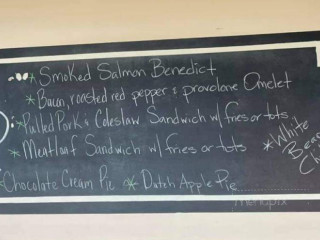 * Smoked Salmon Benedict
* Bacon, roasted red pepper & provolone Omelet
* Pulled Pork & Coleslaw Sandwich w/ fries or tots
* Meatloaf Sandwich w/ fries or tots
* White
Bean
Chi
Chocolate Cream Pie * Dutch Apple Pie
menupix